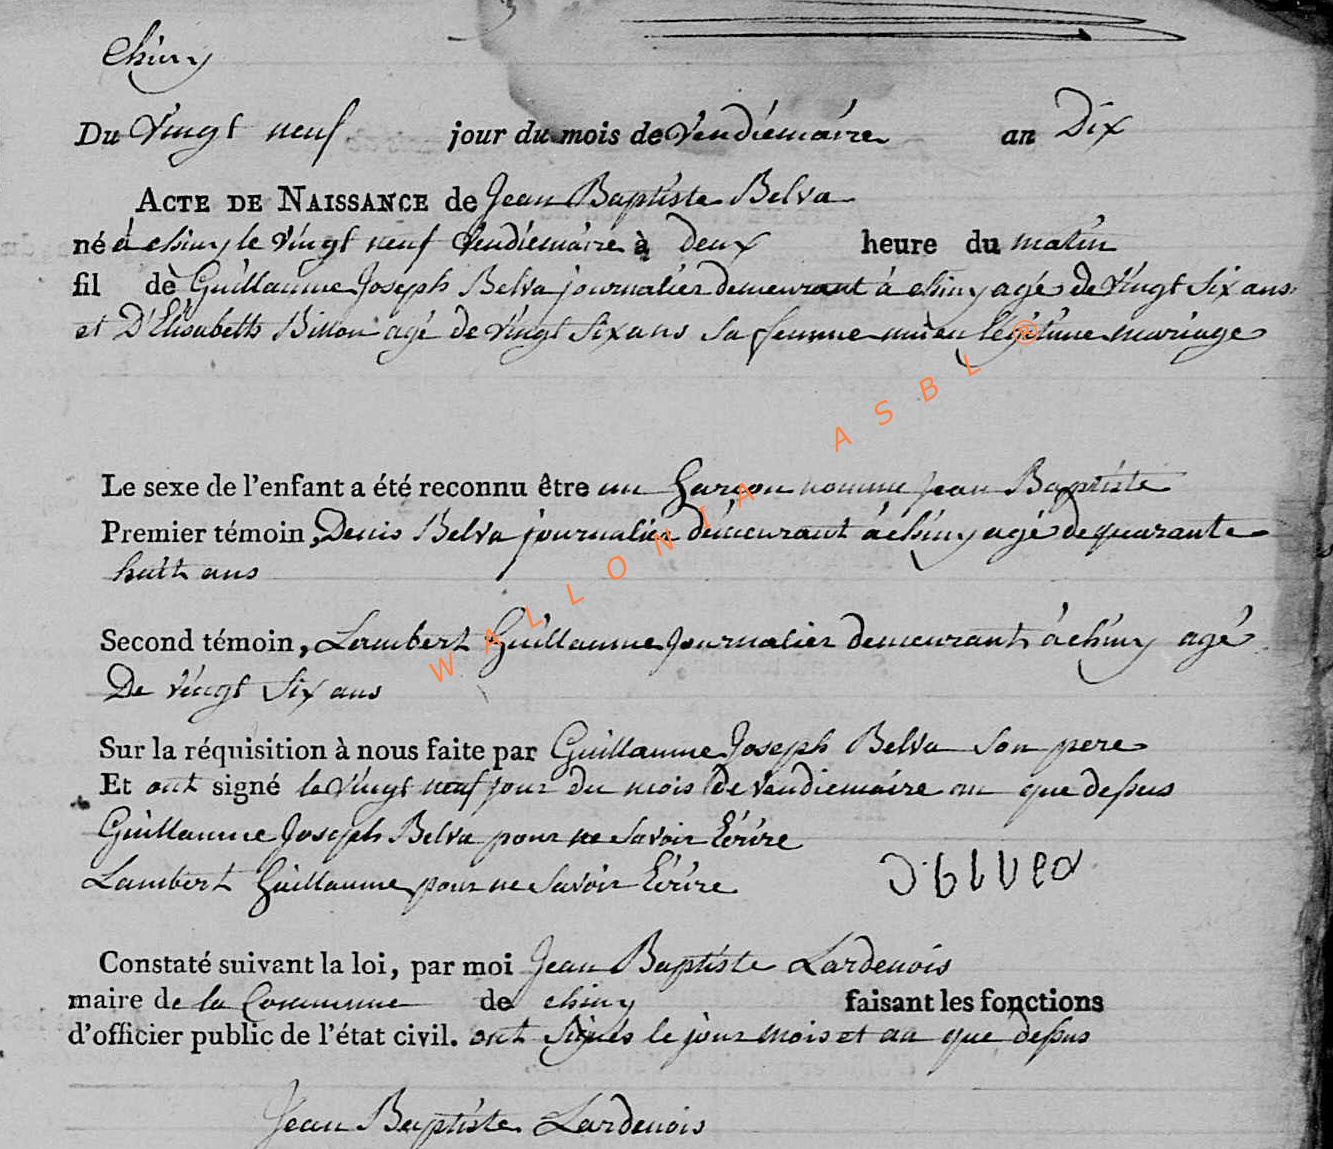 Chiny
Du Vingt neuf jour du mois de Vendiémaire an Dix
ACTE DE NAISSANCE de Jean Baptiste Belva
né á chiny le Vingt neuf Vendiémaire à deux heure du matin
fil de Guillaume Joseph Belva journalier demeurant á chiny agé de Vingt Six ans
et D'Elisabeth Billon agé de Vingt Six ans Sa femme uni en legitime mariage
Le sexe de l'enfant a été reconnu être un Garçon nomme jean Baptiste
Premier témoin, Denis Belva journalier démeurant á chiny agé de quarante
huit ans
Second témoin, Lambert Guillaume journalier demeurant á chiny agé
De vingt Six ans
Sur la réquisition à nous faite par Guillaume Joseph Belva Son pere
Et ont signé le Vingt neuf jour du mois De Vendiemaire an que dessus
Guillaume Joseph Belva pour ne Savoir Ecrire
Lambert Guillaume pour ne Savoir Ecrire
Constaté suivant la loi, par moi Jean Baptiste Lardenois
maire de la Commune de chiny faisant les fonctions
d'officier public de l'état civil. ont Signés le jour mois et an que dessus
Jean Baptiste Lardenois
WALLONIA ASBL ®